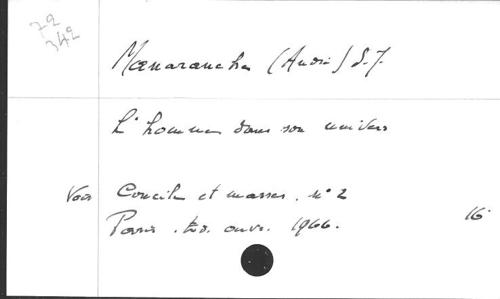 72
342
Manaranche (André) S.J.
L'homme dans son univers
Voir Concile et masses. n° 2
Paris. Ed. ouvr. 1966. 16°